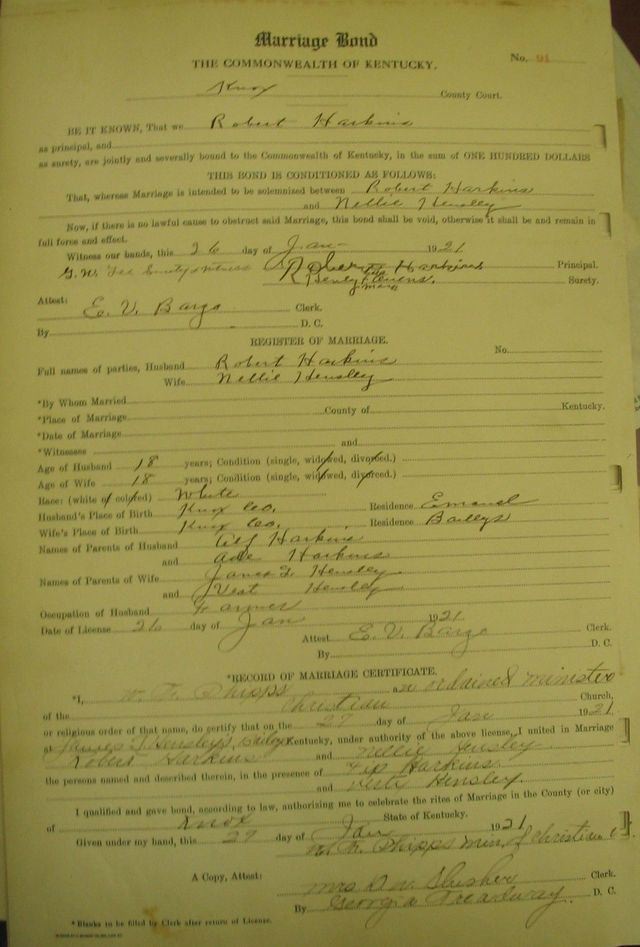 Marriage Bond
THE COMMONWEALTH OF KENTUCKY.
No. 91
Knox County Court.
BE IT KNOWN, That we Robert Harkins
as principal, and
as surety, are jointly and severally bound to the Commonwealth of Kentucky, in the sum of ONE HUNDRED DOLLARS
THIS BOND IS CONDITIONED AS FOLLOWS:
That, whereas Marriage is intended to be solemnized between Robert Harkins
and Nellie Hensley
Now, if there is no lawful cause to obstruct said Marriage, this bond shall be void, otherwise it shall be and remain in
full force and effect.
Witness our hands, this 26 day of Jan 1921
G. W. witness Robert Harkins Principal.
Surety.
Attest: E. V. Bargo Clerk.
By D. C.
REGISTER OF MARRIAGE.
No.
Full names of parties, Husband Robert Harkins
Wife Nellie Hensley
*By Whom Married
*Place of Marriage County of Kentucky.
*Date of Marriage
*Witnesses and
Age of Husband 18 years; Condition (single, widowed, divorced.)
Age of Wife 18 years; Condition (single, widowed, divorced.)
Race: (white of colored) White
Husband's Place of Birth Knox Co. Residence Emanuel
Wife's Place of Birth Knox Co. Residence Baileys
Names of Parents of Husband Harkins
and Harkins
Names of Parents of Wife James T. Hensley
and Hensley
Occupation of Husband Farmer
Date of License 26 day of Jan 1921
Attest E. V. Bargo Clerk.
By D. C.
*RECORD OF MARRIAGE CERTIFICATE.
*I, W. F. Phipps an ordained minister
of the Christian Church,
or religious order of that name, do certify that on the 27 day of Jan 1921
at James T Hensley's Kentucky, under authority of the above license, I united in Marriage
Robert Harkins and Nellie Hensley
the persons named and described therein, in the presence of Harkins
and Hensley.
I qualified and gave bond, according to law, authorizing me to celebrate the rites of Marriage in the County (or city)
of Knox State of Kentucky.
Given under my hand, this 27 day of Jan 1921
Phipps min of christian
A Copy, Attest: Mrs Clerk.
By Georgia Treadway. D. C.
*Blanks to be filled by Clerk after return of License.